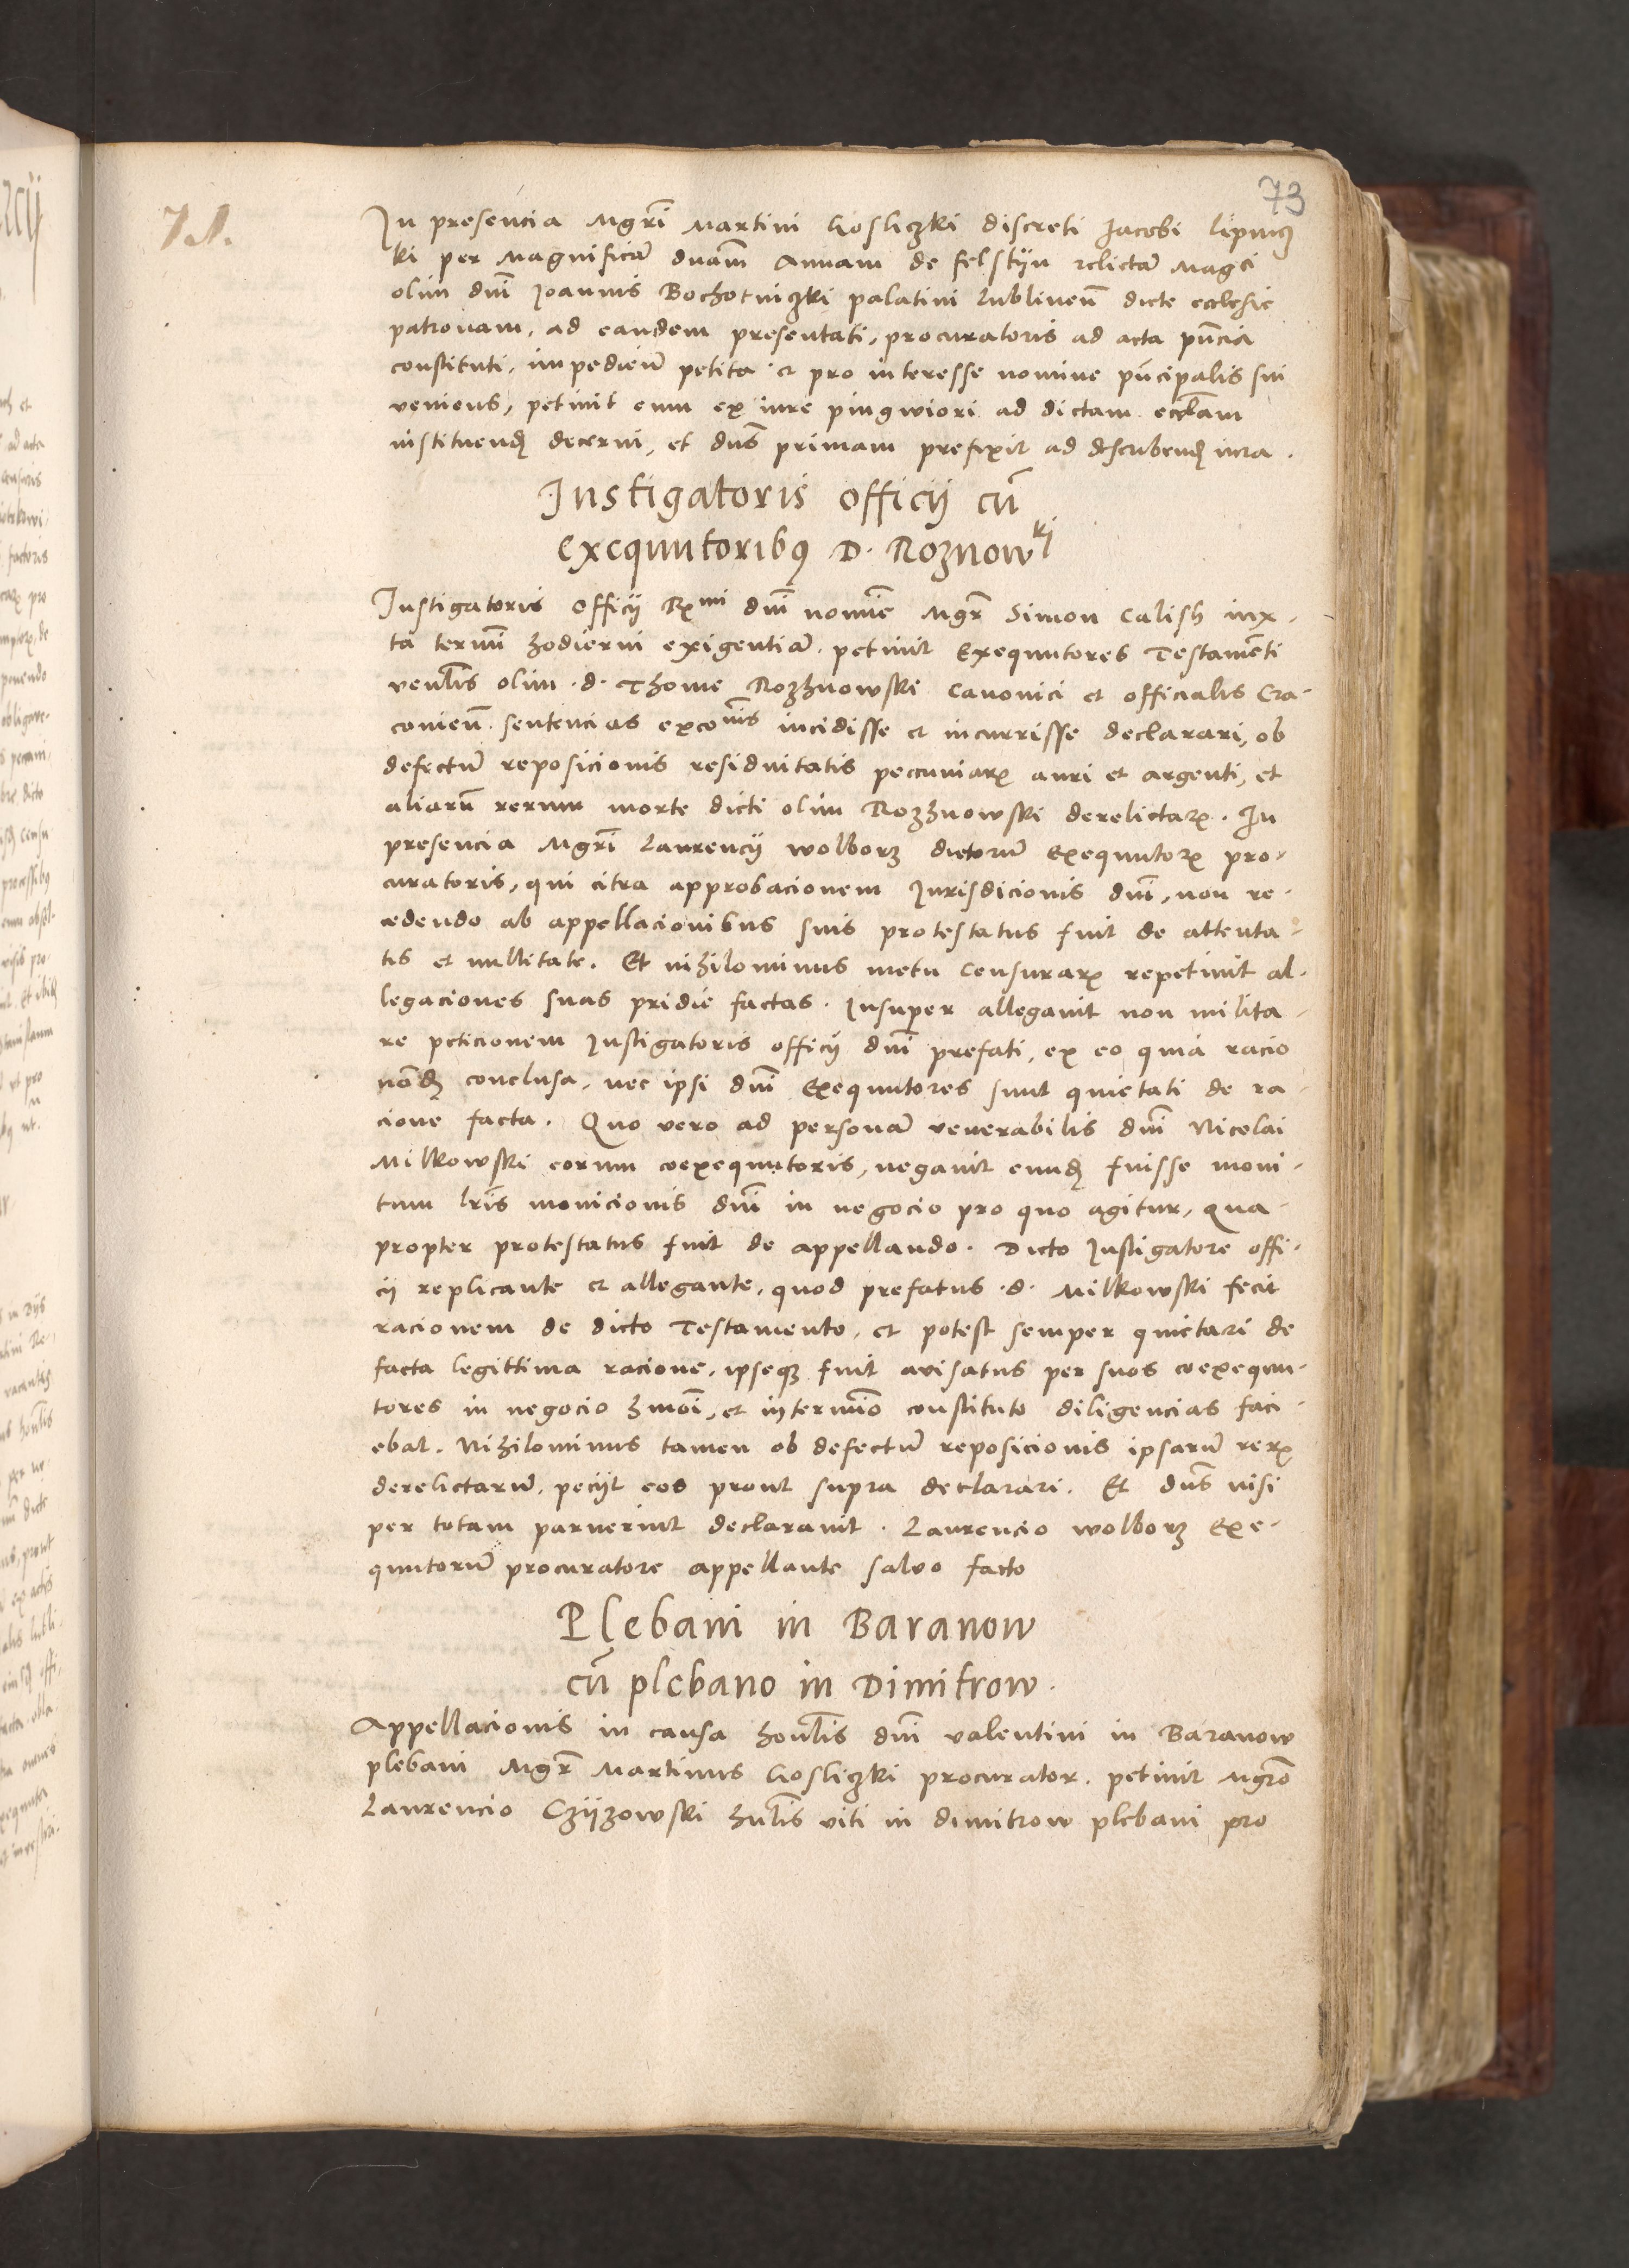 73
71.
In presencia Mgrī Martini Gosliczki discreti Jacobi Lipnicz
ki per Magnificā dnām Annam de Felstijn relictā Magci
olim dnī Joannis Bochotniczki palatini Lublinen̄ dicte ecclesie
patronam, ad eandem presentati, procuratoris ad acta pn̄cia
constituti, impedien̄ petita et pro interesse nomine pn̄cipalis sui
veniens, petivit eum ex iure pingwiori ad dictam eccl̄am
instituendȝ decerni, et dn̄s primam prefixit ad describendȝ iura.
Instigatoris officij cū
exequutoribȝ D. Roznowkj
Instigatoris officij Rmi dnī nomīe Mgr̄ Simon Calish iux-
ta termī hodierni exigentiā. petivit Exequutores Testamēti
venl̄is olim .d. Thome Rozhnowski Canonici et officialis Cra-
covien̄. sentencias excōnis incidisse et incurrisse declarari, ob
defectū reposicionis residuitatis peccuniarꝝ auri et argenti, et
aliarū rerum morte dicti olim Rozhnowski derelictarꝝ. In
presencia Mgrī Laurencij Wolborz dictorū Exequutorꝝ pro-
curatoris, qui citra approbacionem Jurisdicionis dnī, non re-
cedendo ab appellacionibus suis protestatus fuit de attenta-
tis et nullitate. Et nihilominus metu censurarꝝ repetivit al-
legaciones suas pridie factas. Insuper allegavit non milita-
re peticionem Instigatoris officij dnī prefati, ex eo quia racio
nōdȝ conclusa, nec ipsi dnī Exequutores sunt quietati de ra-
cione facta. Quo vero ad personā venerabilis dnī Nicolai
Milkowski eorum coexequutoris, negavit eundȝ fuisse moni-
tum lr̄is monicionis dnī in negocio pro quo agitur, qua-
propter protestatus fuit de appellando. Dicto Instigatore offi-
cij replicante et allegante, quod prefatus .d. Milkowski fecit
racionem de dicto Testamento, et potest semper quietari de
facta legittima racione, ipseqȝ fuit avisatus per suos coexequu-
tores in negocio hmōi, et in termīo constituto diligencias faci-
ebat. Nihilominus tamen ob defectū reposicionis ipsarū rerꝝ
derelictarū, pecijt eos prout supra declarari. Et dn̄s nisi
per totam paruerint declaravit. Laurencio Wolborz Exe-
quutorū procuratore appellante salvo facto
Plebani in Baranow
cū plebano in Dimitrow.
Appellacionis in causa honl̄is dnī Valentini in Baranow
plebani Mgr̄ Martinus Gosliczki procurator. petivit Mgrō
Laurencio Czijzowski hnl̄is Viti in Dimitrow plebani pro